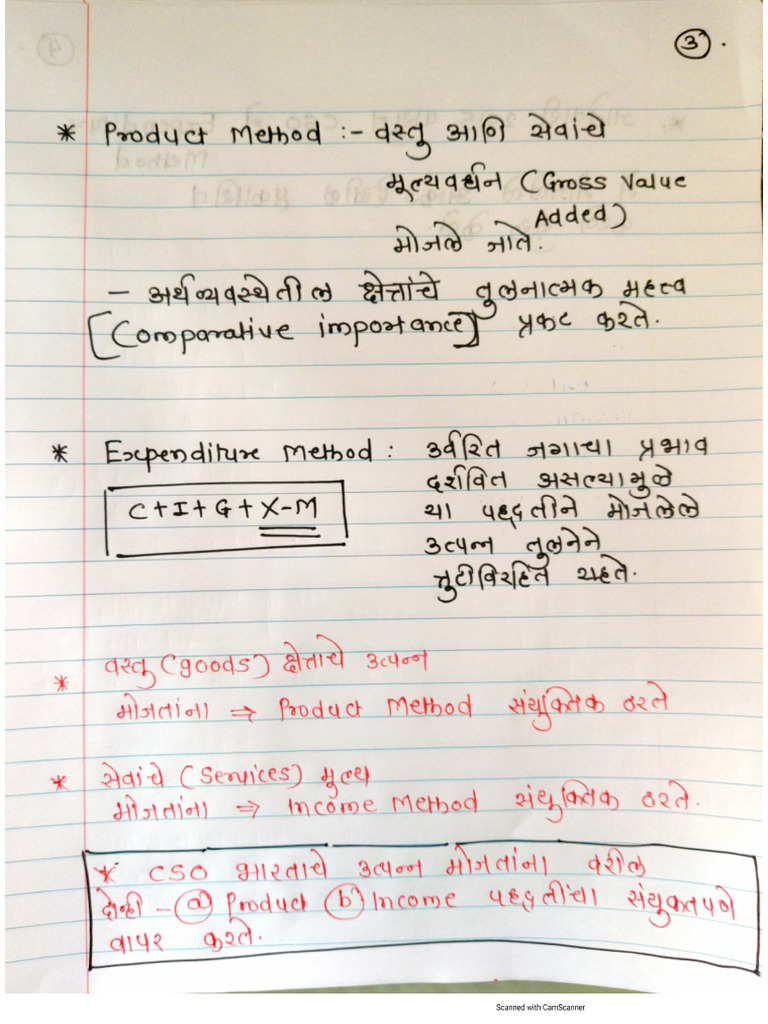 3.
* Product Method :- वस्तु आणि सेवांचे
मूल्यवर्धन (Gross Value
Added)
मोजले जाते.
- अर्थव्यवस्थेतील क्षेत्रांचे तुलनात्मक महत्व
[Comparative importance] प्रकट करते.
* Expenditure Method : उर्वरित जगाचा प्रभाव
दर्शवित असल्यामुळे
C+I+G+X-M या पद्धतीने मोजलेले
उत्पन्न तुलनेने
त्रुटीविरहित राहते.
* वस्तु (goods) क्षेत्राचे उत्पन्न
मोजतांना ⇒ Product Method संयुक्तिक ठरते
* सेवांचे (Services) मूल्य
मोजतांना ⇒ Income Method संयुक्तिक ठरते.
* CSO भारताचे उत्पन्न मोजतांना वरील
दोन्ही - (a) Product (b) Income पद्धतींचा संयुक्तपणे
वापर करते.
Scanned with CamScanner